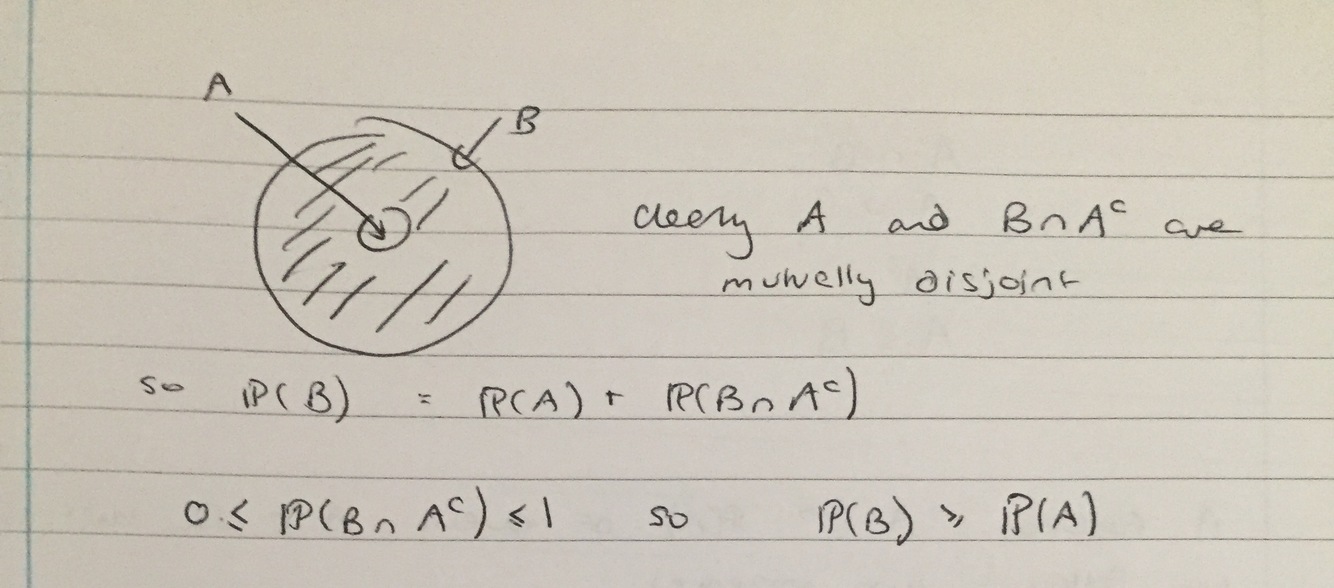 A
B
clearly A and B∩Aᶜ are
mutually disjoint
so ℙ(B) = ℙ(A) + ℙ(B∩Aᶜ)
0 ≤ ℙ(B∩Aᶜ) ≤ 1 so ℙ(B) ≥ ℙ(A)